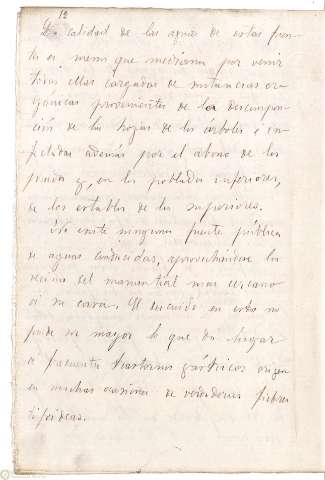 12
La calidad de las aguas de estas fuen-
tes es menos que mediana por venir
todas ellas cargadas de sustancias or-
gánicas provenientes de la descomposi-
ción de las hojas de los árboles é in-
fectadas además por el abono de los
prados y, en los poblados inferiores,
de los establos de los superiores.
No existe ninguna fuente pública
de aguas conducidas, aprovechándose los
vecinos del manantial mas cercano
a su casa. El descuido en esto no
puede ser mayor lo que da lugar
a frecuentes trastornos gástricos origen
en muchas ocasiones de verdaderas fiebres
tifoideas.